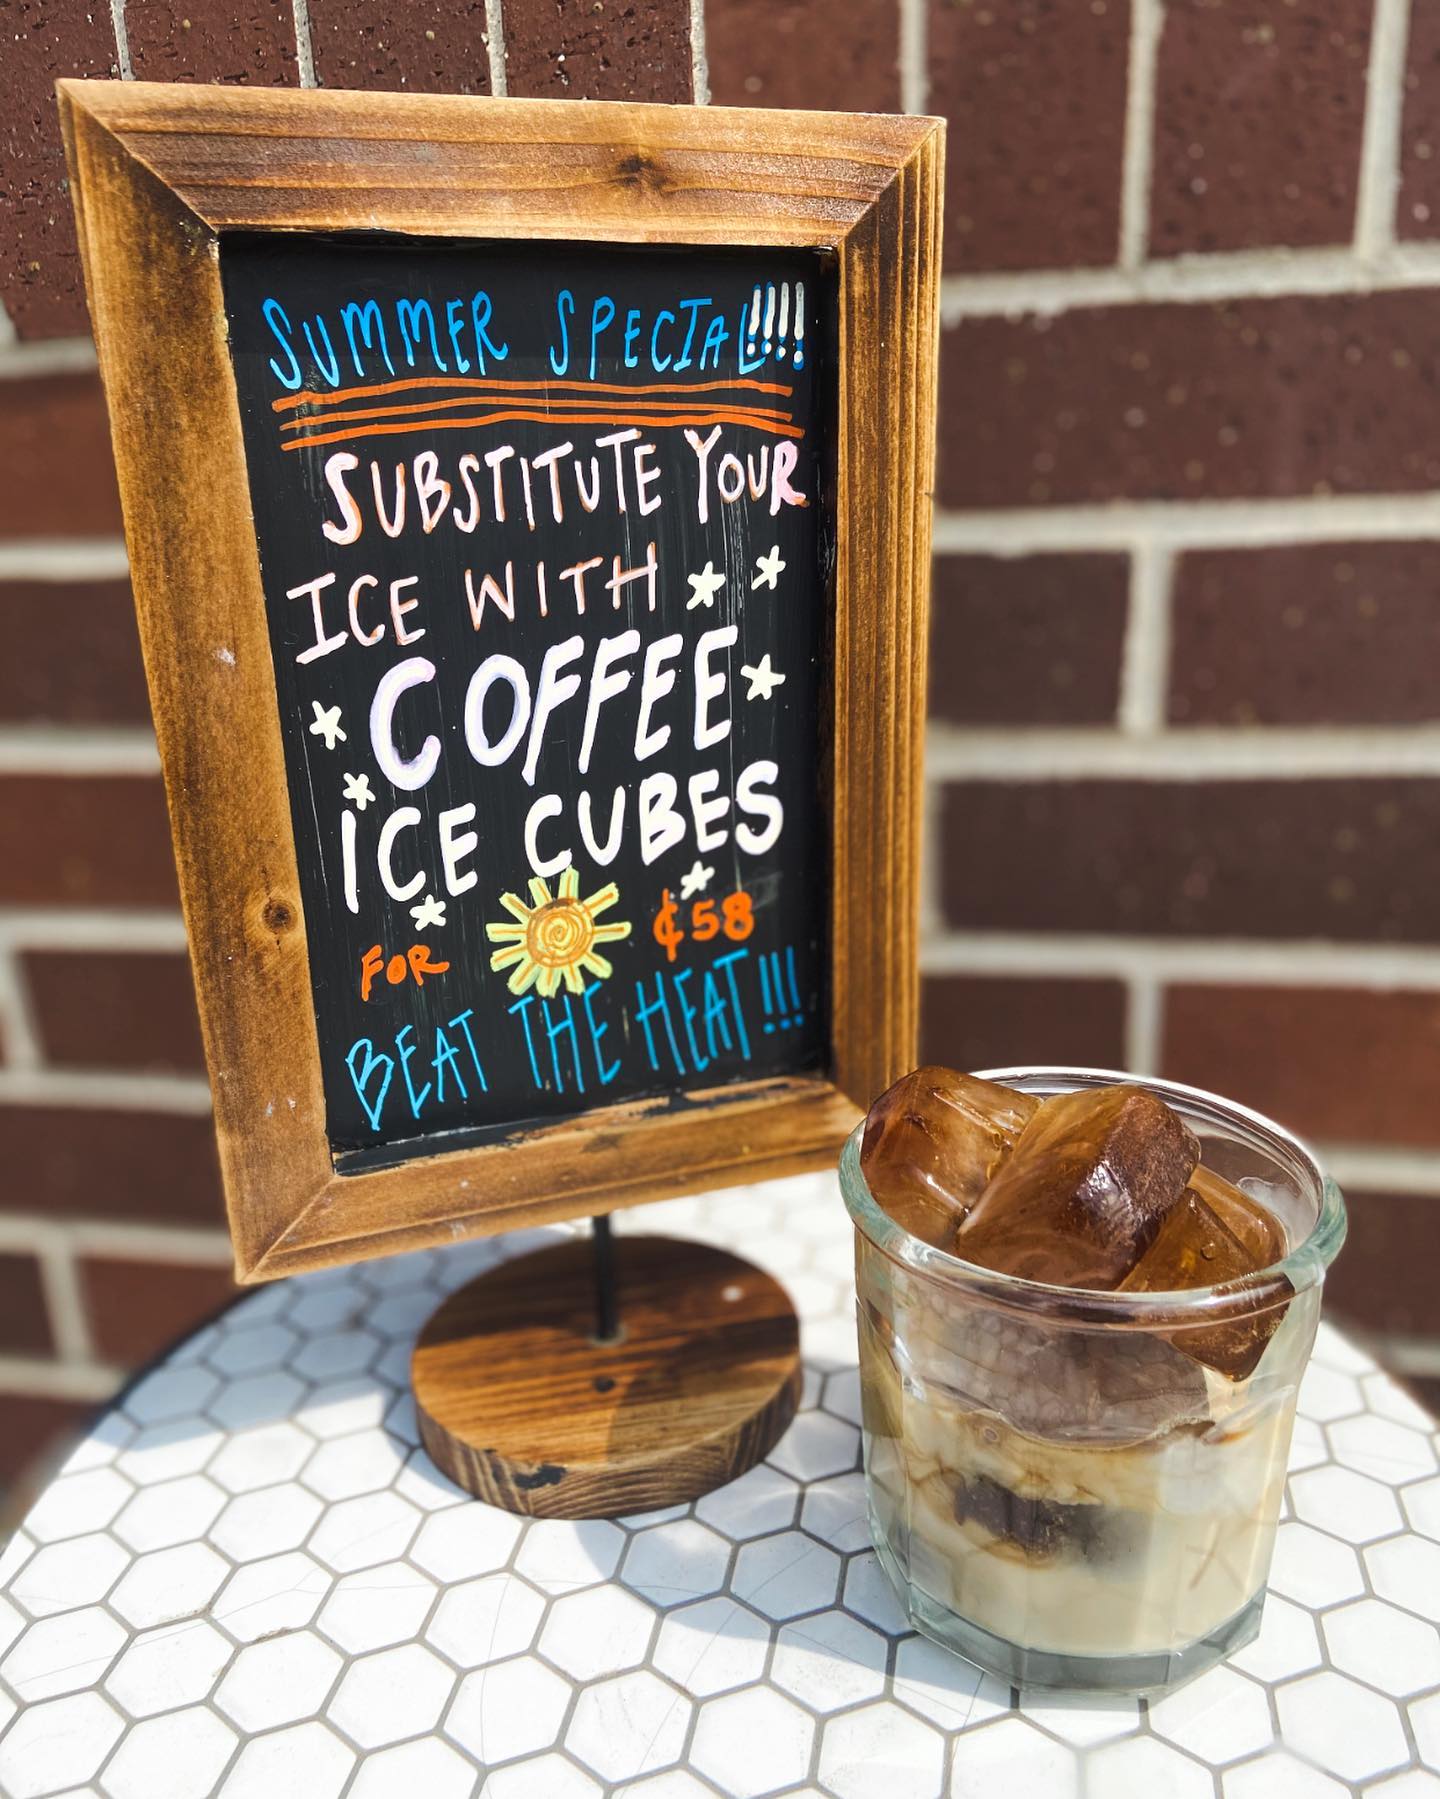 SUMMER SPECIAL!!!!
SUBSTITUTE YOUR
ICE WITH
COFFEE
ICE CUBES
FOR ¢58
BEAT THE HEAT!!!